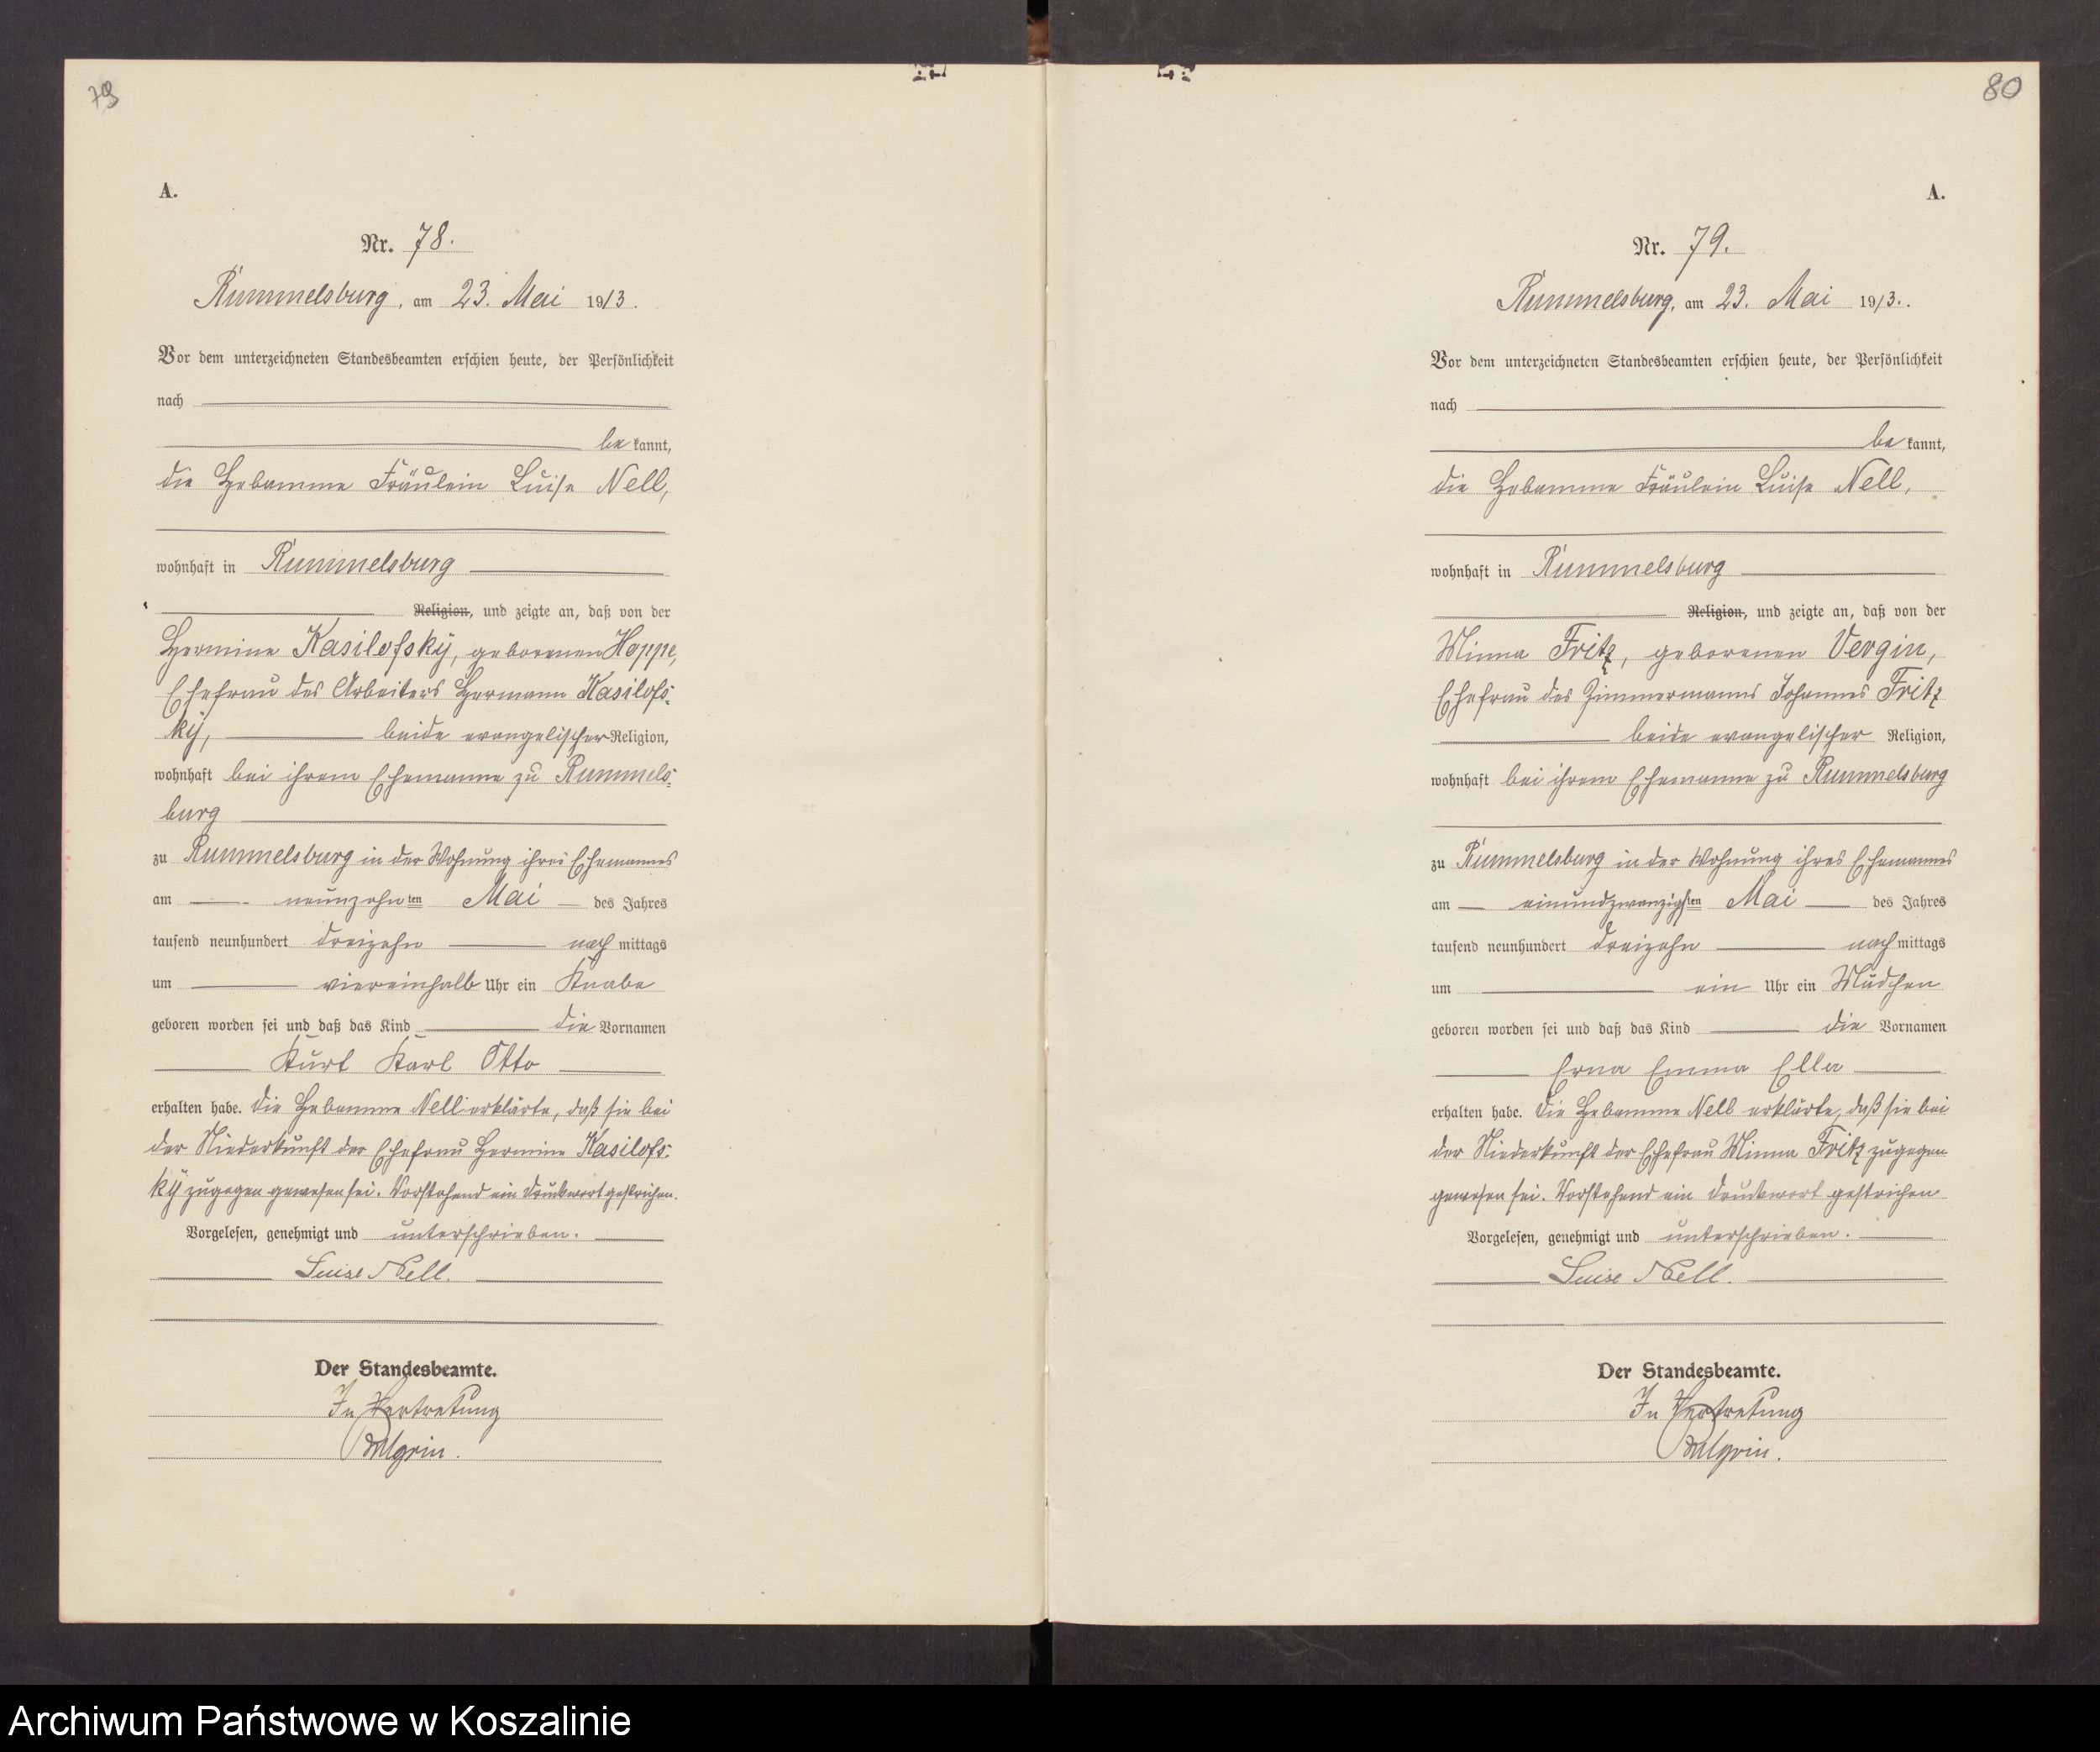 79
A.
Nr. 78.
Rummelsburg, am 23. Mai 1913.
Vor dem unterzeichneten Standesbeamten erschien heute, der Persönlichkeit
nach
be kannt,
die Hebamme Fräulein Luise Nell,
wohnhaft in Rummelsburg
Religion, und zeigte an, daß von der
Hermine Kasilofsky, geborenen Hoppe,
Ehefrau des Arbeiters Hermann Kasilofs-
ky, beide evangelischer Religion,
wohnhaft bei ihrem Ehemanne zu Rummels-
burg
zu Rummelsburg in der Wohnung ihres Ehemannes
am neunzehn ten Mai des Jahres
tausend neunhundert dreizehn nach mittags
um viereinhalb Uhr ein Knabe
geboren worden sei und daß das Kind die Vornamen
Kurt Karl Otto
erhalten habe. Die Hebamme Nell erklärte, daß sie bei
der Niederkunft der Ehefrau Hermine Kasilofs-
ky zugegen gewesen sei. Vorstehend ein Druckwort gestrichen.
Vorgelesen, genehmigt und unterschrieben.
Luise Nell.
Der Standesbeamte.
In Vertretung
80
A.
Nr. 79.
Rummelsburg, am 23. Mai 1913.
Vor dem unterzeichneten Standesbeamten erschien heute, der Persönlichkeit
nach
be kannt,
die Hebamme Fräulein Luise Nell,
wohnhaft in Rummelsburg
Religion, und zeigte an, daß von der
Minna Fritz, geborenen Vergin,
Ehefrau des Zimmermanns Johannes Fritz
beide evangelischer Religion,
wohnhaft bei ihrem Ehemanne zu Rummelsburg
zu Rummelsburg in der Wohnung ihres Ehemannes
am einundzwanzigsten Mai des Jahres
tausend neunhundert dreizehn nach mittags
um ein Uhr ein Mädchen
geboren worden sei und daß das Kind die Vornamen
Erna Emma Ella
erhalten habe. Die Hebamme Nell erklärte, daß sie bei
der Niederkunft der Ehefrau Minna Fritz zugegen
gewesen sei. Vorstehend ein Druckwort gestrichen
Vorgelesen, genehmigt und unterschrieben.
Luise Nell.
Der Standesbeamte.
In Vertretung
Archiwum Państwowe w Koszalinie